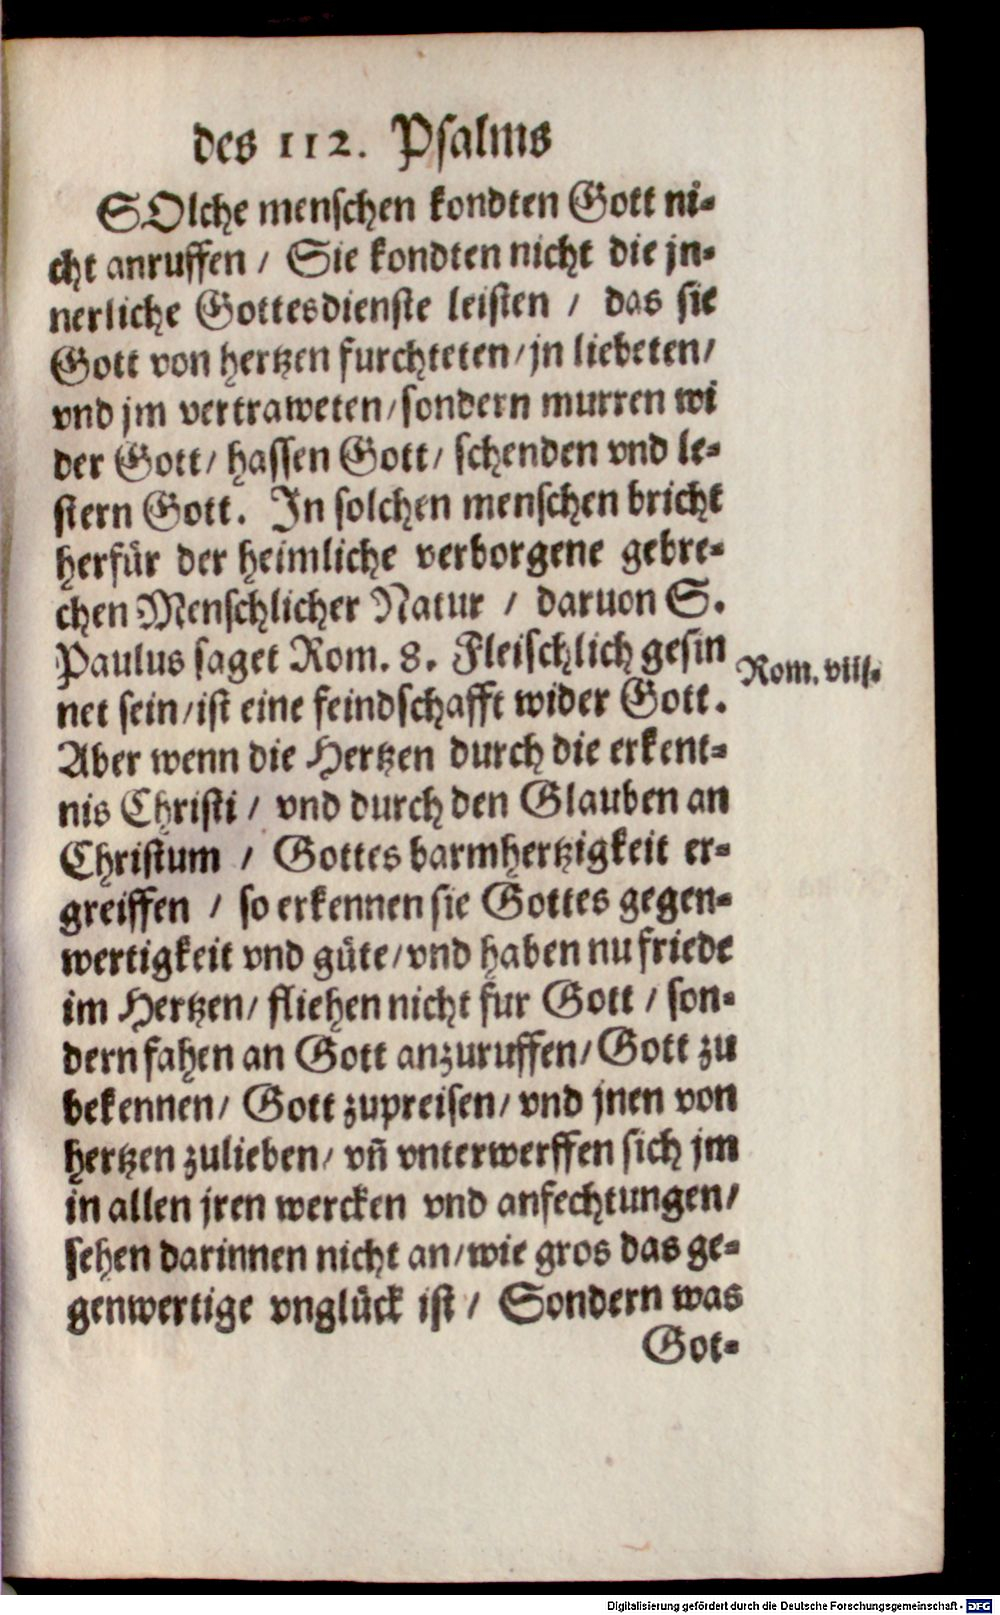 des 112. Psalms
SOlche menschen kondten Gott ni-
cht anruffen / Sie kondten nicht die jn-
nerliche Gottesdienste leisten / das sie
Gott von hertzen furchteten / jn liebeten /
vnd jm vertraweten / sondern murren wi
der Gott / hassen Gott / schenden vnd le-
stern Gott. In solchen menschen bricht
herfür der heimliche verborgene gebre-
chen Menschlicher Natur / daruon S.
Paulus saget Rom. 8. Fleischlich gesin
Rom. viij.
net sein / ist eine feindschafft wider Gott.
Aber wenn die Hertzen durch die erkent-
nis Christi / vnd durch den Glauben an
Christum / Gottes barmhertzigkeit er-
greiffen / so erkennen sie Gottes gegen-
wertigkeit vnd güte / vnd haben nu friede
im Hertzen / fliehen nicht fur Gott / son-
dern fahen an Gott anzuruffen / Gott zu
bekennen / Gott zupreisen / vnd jnen von
hertzen zulieben / vñ vnterwerffen sich jm
in allen jren wercken vnd anfechtungen /
sehen darinnen nicht an / wie gros das ge-
genwertige vnglück ist / Sondern was
Got-
Digitalisierung gefördert durch die Deutsche Forschungsgemeinschaft - DFG